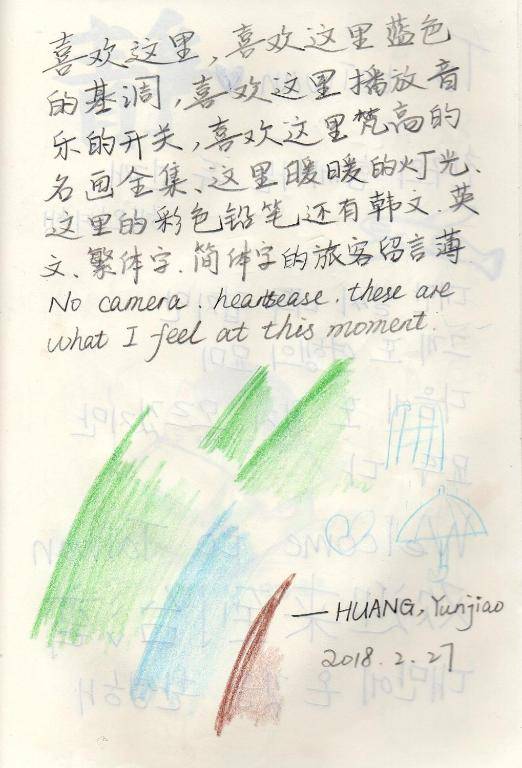 喜欢这里，喜欢这里蓝色
的基调，喜欢这里播放音
乐的开关，喜欢这里梵高的
名画全集、这里暖暖的灯光、
这里的彩色铅笔还有韩文、英
文、繁体字、简体字的旅客留言薄
No camera. heartsease. these are
what I feel at this moment.
— HUANG, Yunjiao
2018.2.27